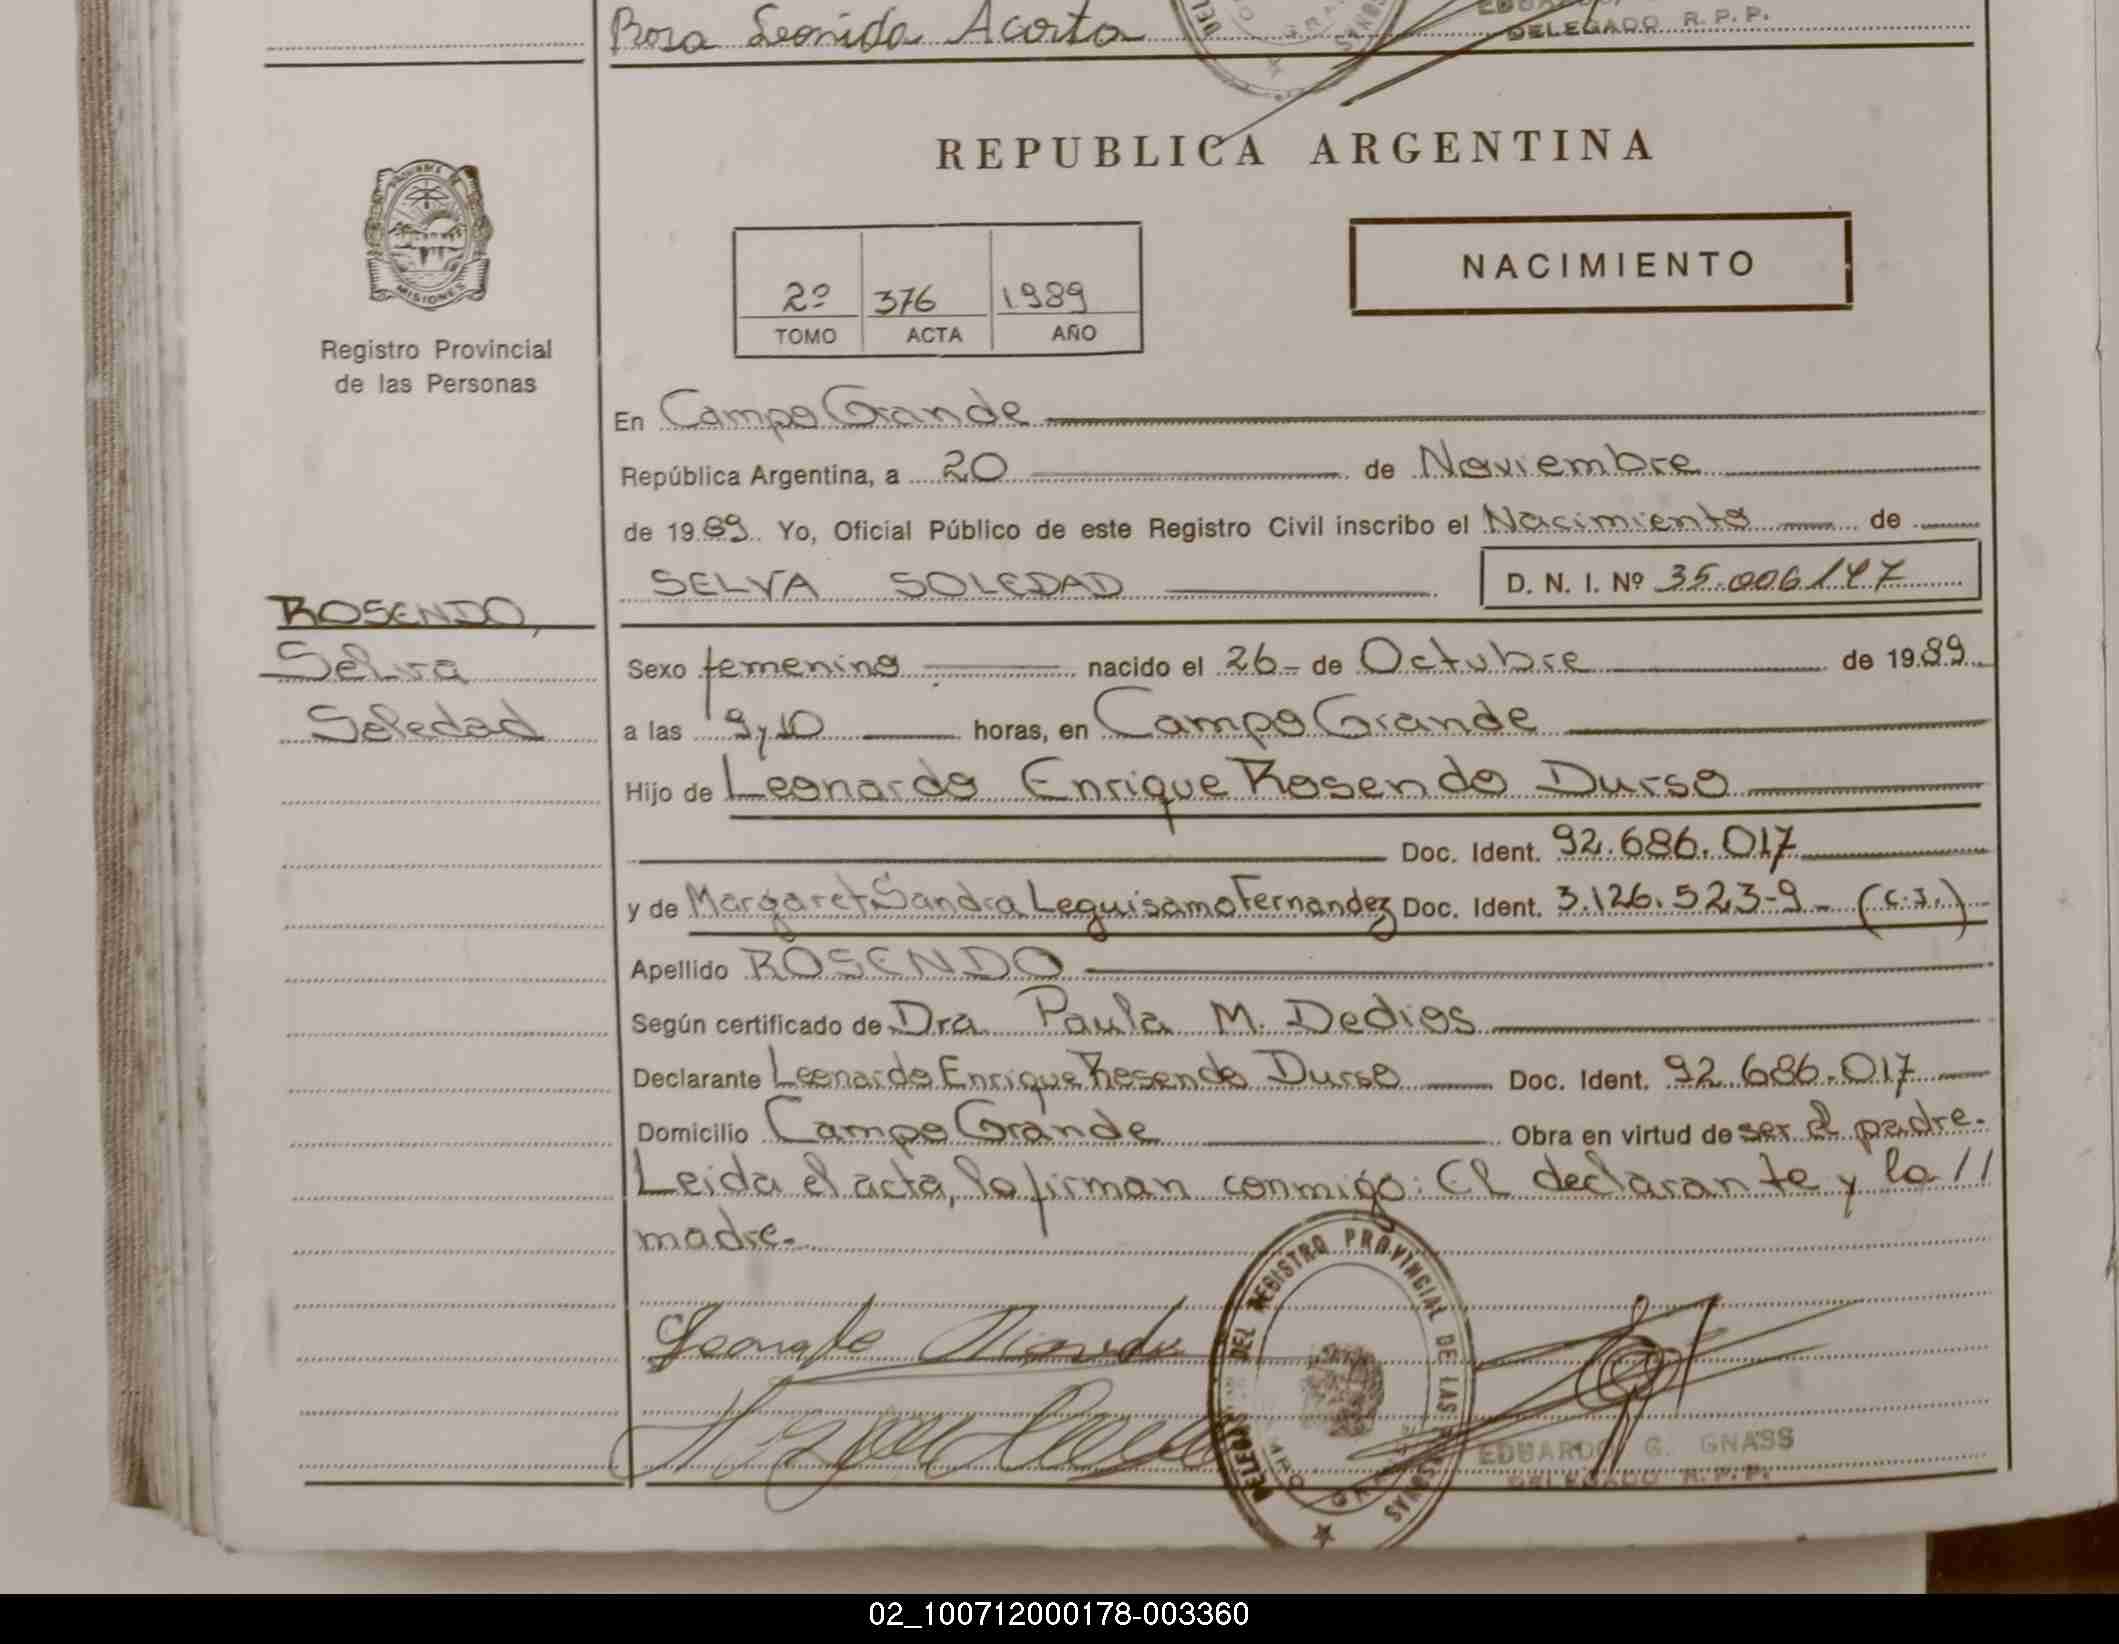 Rosa Leonida Acosta
DELEGADO R. P. P.
REPUBLICA ARGENTINA
MISIONES
Registro Provincial
de las Personas
2º 376 1989
TOMO ACTA AÑO
NACIMIENTO
En Campo Grande
República Argentina, a 20 de Noviembre
de 1989. Yo, Oficial Público de este Registro Civil inscribo el Nacimiento de
SELVA SOLEDAD D. N. I. Nº 35.006.147
ROSENDO,
Selva
Soledad
Sexo femenino nacido el 26 de Octubre de 1989
a las 9y10 horas, en Campo Grande
Hijo de Leonardo Enrique Rosendo Durso
Doc. Ident. 92.686.017
y de Margaret Sandra Leguisamo Fernandez Doc. Ident. 3.126.523-9 (C.I.)
Apellido ROSENDO
Según certificado de Dra Paula M. Dedios
Declarante Leonardo Enrique Rosendo Durso Doc. Ident. 92.686.017
Domicilio Campo Grande Obra en virtud de ser el padre.
Leida el acta, la firman conmigo: El declarante y la //
madre.
DEL REGISTRO PROVINCIAL DE LAS
EDUARDO G. GNASS
DELEGADO R. P. P.
02_100712000178-003360